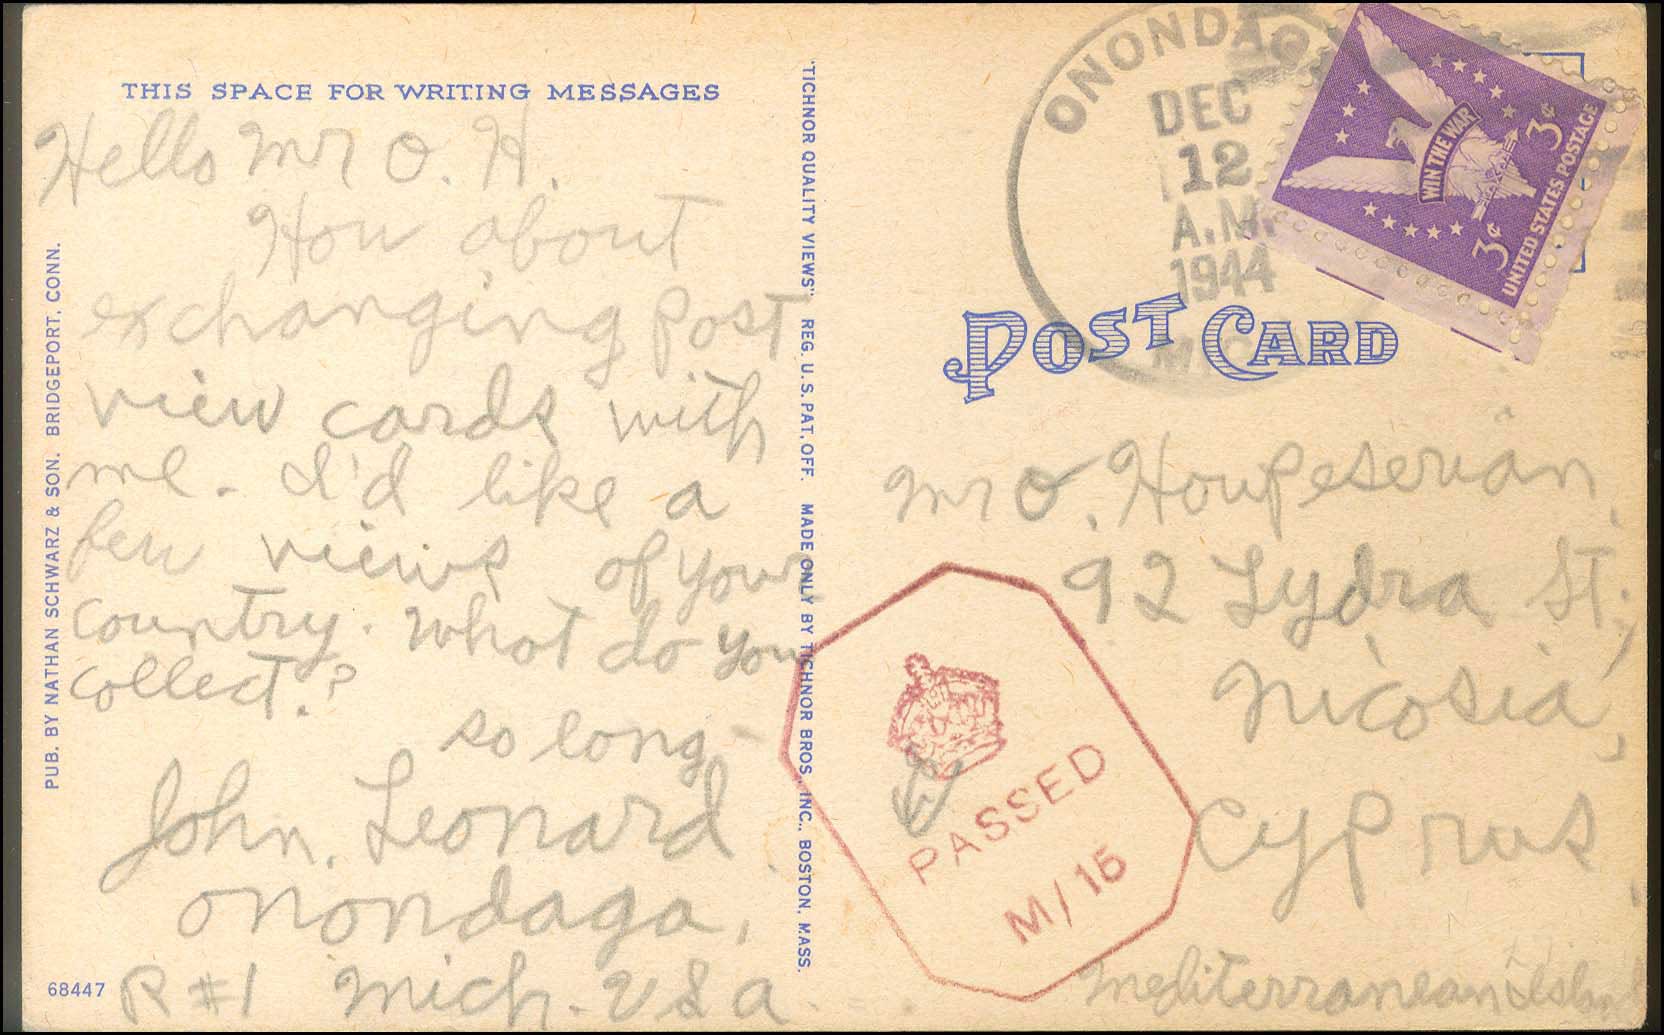 THIS SPACE FOR WRITING MESSAGES
Hello Mr O. H.
How about
exchanging post
view cards with
me. I'd like a
few views of your
country. What do you
collect.?
so long
John. Leonard.
Onondaga,
R #1 Mich. USA.
68447
PUB. BY NATHAN SCHWARZ & SON. BRIDGEPORT, CONN.
"TICHNOR QUALITY VIEWS" REG. U.S. PAT. OFF. MADE ONLY BY TICHNOR BROS. INC., BOSTON, MASS.
ONONDAGA
DEC
12
A.M.
1944
WIN THE WAR
3¢
3¢
UNITED STATES POSTAGE
POST CARD
Mr O. Houpeserian,
92 Lydra St.,
Nicosia,
Cyprus,
Mediterranean Island
PASSED
M/15